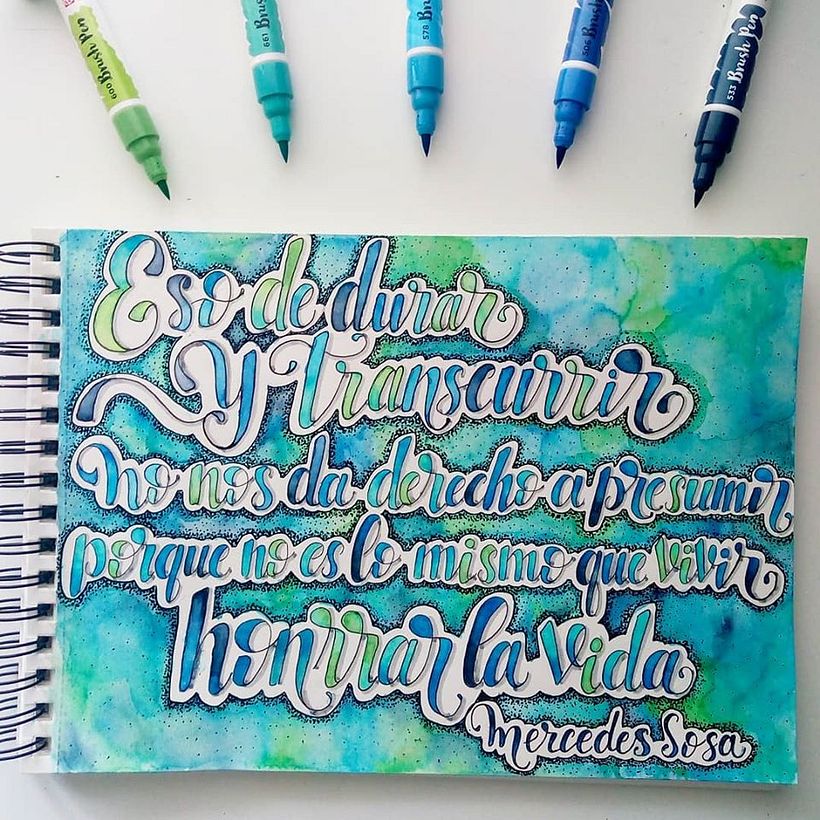 600 Brush Pen
661 Brush
578 Bru
506 Brush
533 Brush Pen
Eso de durar
y transcurrir
no nos da derecho a presumir
porque no es lo mismo que vivir
honrrar la vida
Mercedes Sosa